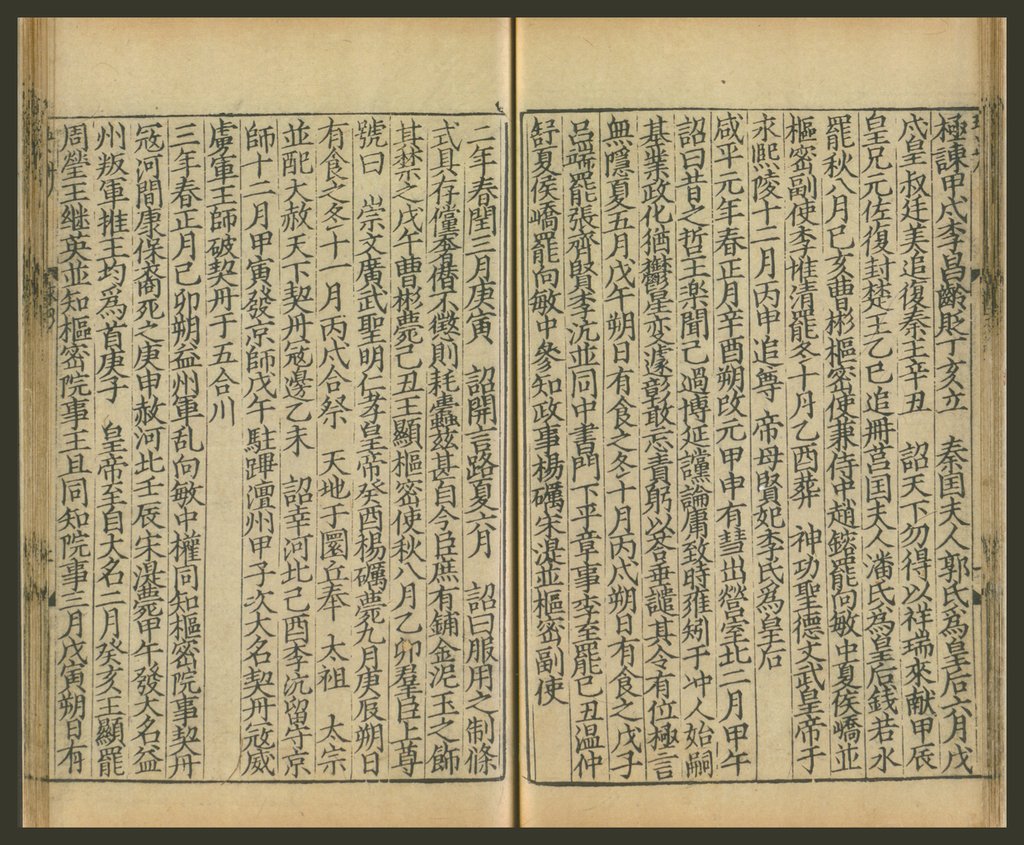 極諫甲戍李昌齡貶丁亥立　秦囯夫人郭氏為皇后六月戊
戍皇叔廷美追復秦王辛丑　詔天下勿得以祥瑞來献甲辰
皇兄元佐復封楚王乙巳追冊莒囯夫人潘氏為皇后錢若水
罷秋八月己亥曹彬樞密使兼侍中趙鎔罷向敏中夏侯嶠並
樞密副使李惟清罷冬十月乙酉葬　神功聖德文武皇帝于
永熈陵十二月丙申追尊　帝母賢妃李氏為皇后
咸平元年春正月辛酉朔改元甲申有彗出營室北二月甲午
詔曰昔之哲王楽聞己過博延讜論庸致時雍矧于冲人始嗣
基業政化猶欝星变遽彰敢忘責躬以荅垂譴其令有位極言
無隱夏五月戊午朔日有食之冬十月丙戍朔日有食之戊子
吕端罷張齊賢李沆並同中書門下平章事李至罷己丑温仲
舒夏侯嶠罷向敏中參知政事楊礪宋湜並樞密副使
二年春閏三月庚寅　詔開言路夏六月　詔曰服用之制條
式具存儻奢僣不懲則耗蠹兹甚自今臣庶有鋪金泥玉之飾
其禁之戊午曹彬薨己丑王顯樞密使秋八月乙卯羣臣上尊
號曰　崇文廣武聖明仁孝皇帝癸酉楊礪薨九月庚辰朔日
有食之冬十一月丙戍合祭　天地于圜丘奉　太祖　太宗
並配大赦天下契丹冦邊乙未　詔幸河北己酉李沆留守京
師十二月甲寅發京師戊午　駐蹕澶州甲子次大名契丹冦威
虜軍王師破契丹于五合川
三年春正月己卯朔益州軍乱向敏中權同知樞密院事契丹
冦河間康保裔死之庚申赦河北壬辰宋湜薨甲午發大名益
州叛軍推王均為首庚子　皇帝至自大名二月癸亥王顯罷
周瑩王継英並知樞密院事王旦同知院事三月戊寅朔日有